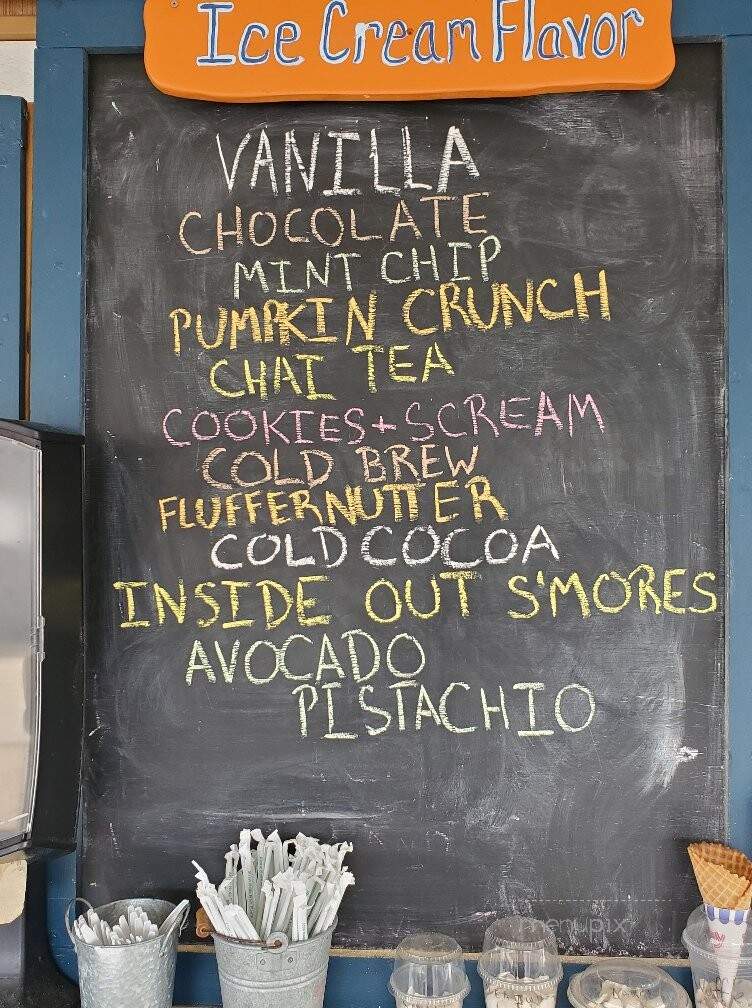 Ice Cream Flavor
VANILLA
CHOCOLATE
MINT CHIP
PUMPKIN CRUNCH
CHAI TEA
COOKIES + SCREAM
COLD BREW
FLUFFERNUTTER
COLD COCOA
INSIDE OUT S'MORES
AVOCADO
PISTACHIO
menupix